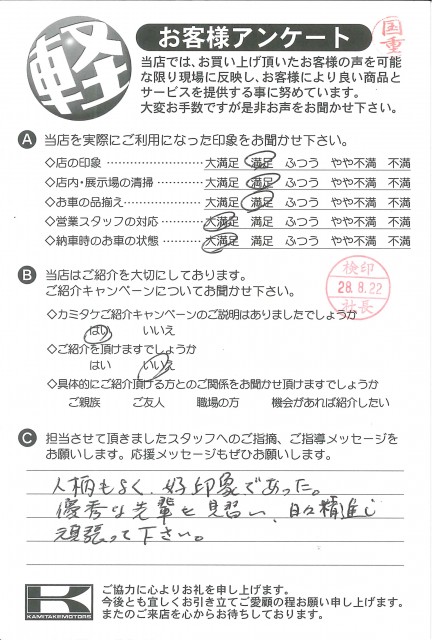 軽
お客様アンケート
国重
当店では、お買い上げ頂いたお客様の声を可能
な限り現場に反映し、お客様により良い商品と
サービスを提供する事に努めています。
大変お手数ですが是非お声をお聞かせ下さい。
A 当店を実際にご利用になった印象をお聞かせ下さい。
◇店の印象 ………………… 大満足 満足 ふつう やや不満 不満
◇店内・展示場の清掃 ………… 大満足 満足 ふつう やや不満 不満
◇お車の品揃え ……………… 大満足 満足 ふつう やや不満 不満
◇営業スタッフの対応 ………… 大満足 満足 ふつう やや不満 不満
◇納車時のお車の状態 ………… 大満足 満足 ふつう やや不満 不満
B 当店はご紹介を大切にしてあります。
ご紹介キャンペーンについてお聞かせ下さい。
検印
28.8.22
社長
◇カミタケご紹介キャンペーンのご説明はありましたでしょうか
はい いいえ
◇ご紹介を頂けますでしょうか
はい いいえ
◇具体的にご紹介頂ける方とのご関係をお聞かせ頂けますでしょうか
ご親族 ご友人 職場の方 機会があれば紹介したい
C 担当させて頂きましたスタッフへのご指摘、ご指導メッセージを
お願いします。応援メッセージもぜひお願いします。
人柄もよく、好印象であった。
優秀な先輩を見習い、日々精進し
頑張って下さい。
K
KAMITAKEMOTORS
ご協力に心よりお礼を申し上げます。
今後とも宜しくお引き立てご愛顧の程お願い申し上げます。
またのご来店を心からお待ちしております。